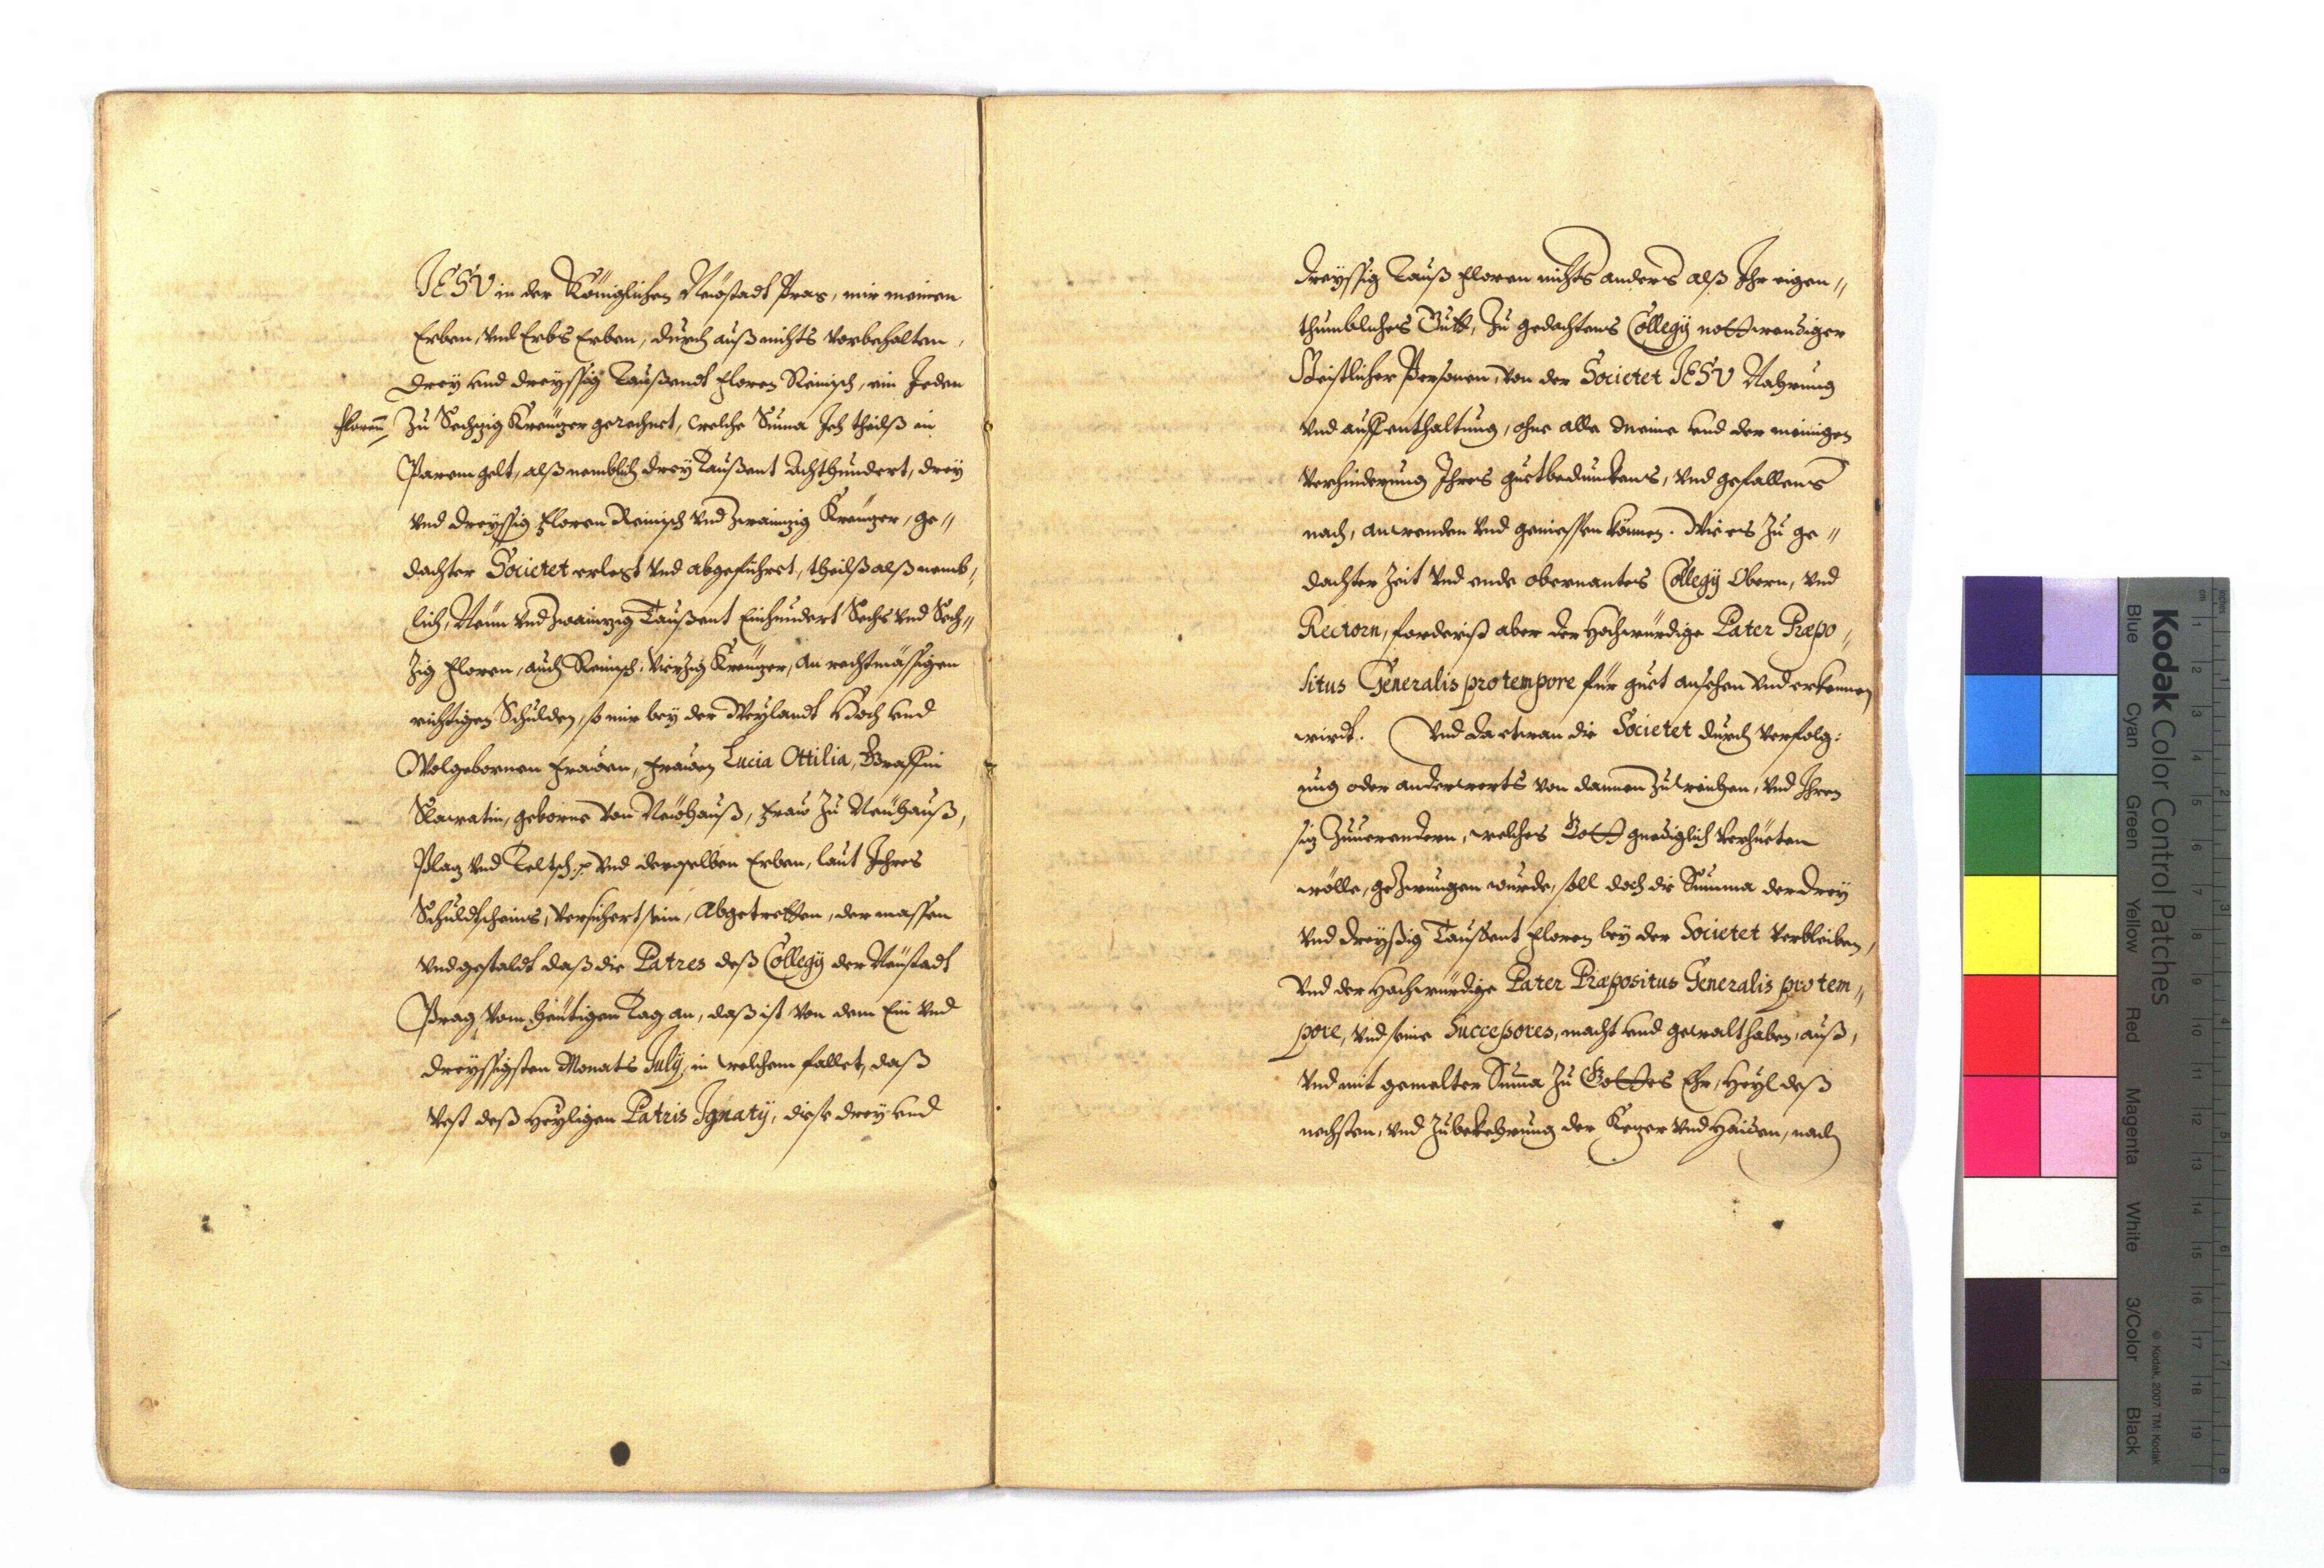 JESV in der Königlichen Neustadt Prag, mir meinen
Erben, und Erbs Erben, durch auß nichts vorbehalten,
Drey und dreyssig Taußendt floren Reinisch, ein Jeden
floren, zu Sechzig Kreuzer gerechnet, welche Suma Ich theilß in
Parem gelt, alß nemblich drey Taußent Achthundert, drey
und dreyssig floren Reinisch und zwainzig Kreuzer, ge„
dachter Societet erlegt und abgeführet, theilß alß nemb„
lich, Neun und zwainzig Taußent Einhundert Sechs und Sech„
zig floren, auch Reinisch, Vierzig Kreuzer, an rechtmässigen
richtigen Schulden, so mir bey der Weylandt Hoch und
Wolgebornen Frawen, Frawen Lucia Ottilia, Graffin
Slawatin, geborne von Newhauß, Fraw zu Neuhauß,
Plaz und Teltsch, und derselben Erben, laut Ihres
Schuldtscheins, versichert sein, Abgetretten, dermassen
und gestaldt daß die Patres deß Collegÿ der Neustadt
Prag, vom heutigen Tag an, daß ist von dem Ein und
dreyssigsten Monats Julÿ, in welchem fallet, daß
Vest deß Heyligen Patris Ignatÿ, diese drey und
dreyssig Tauß floren nichts anders alß Ihr eigen„
thumbliches Gutt, zu gedachtens Collegÿ nottwendiger
Geistlicher Personen, von der Societet JESV Nahrung
und auffenthaltung, ohne alle meine und der meinigen
Verhinderung Ihres guetbedunckens, und gefallens
nach, anwenden und geniessen können. Wie es zu ge„
dachter Zeit und ende obernantes Collegÿ Obern, und
Rectorn, forderiß aber der Hochwürdige Pater Præpo„
situs Generalis pro tempore für guet ansehen und erkennen
wirdt. Und da etwan die Societet durch Verfolg:
ung oder anderwerts von dannen zu weichen, und Ihren
siz zuverendern, welches Gott gnediglich verhueten
wölle, gezwungen wurde, soll doch die Summa der drey
und dreyßig Taußent floren bey der Societet verbleiben,
Und der Hochwürdige Pater Præpositus Generalis pro tem„
pore, und seine Succeßores, macht und gewalt haben, auß,
und mit gemelter Suma zu Gottes Ehr, Heyl deß
nechsten, und zu bekehrung der Kezer und Haiden, nach
Kodak Color Control Patches
© Kodak, 2007. TM: Kodak
Blue Cyan Green Yellow Red Magenta White 3/Color Black
inches 1 2 3 4 5 6 7 8
cm 1 2 3 4 5 6 7 8 9 10 11 12 13 14 15 16 17 18 19